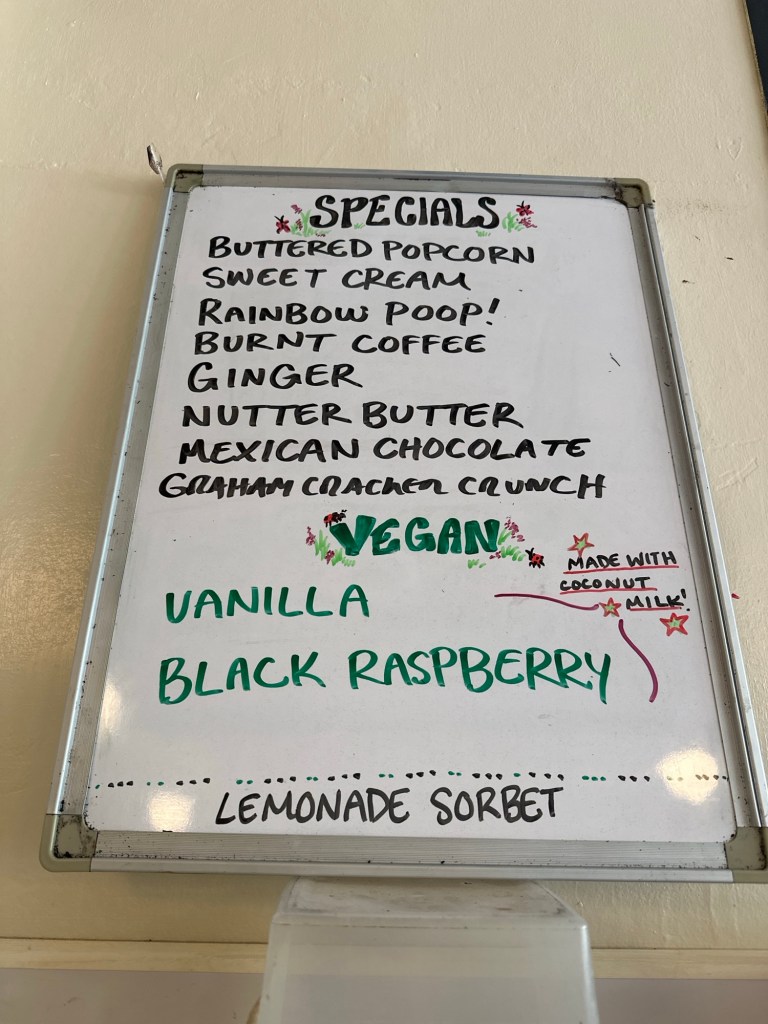 SPECIALS
BUTTERED POPCORN
SWEET CREAM
RAINBOW POOP!
BURNT COFFEE
GINGER
NUTTER BUTTER
MEXICAN CHOCOLATE
GRAHAM CRACKER CRUNCH
VEGAN
MADE WITH
COCONUT
MILK!
VANILLA
BLACK RASPBERRY
LEMONADE SORBET